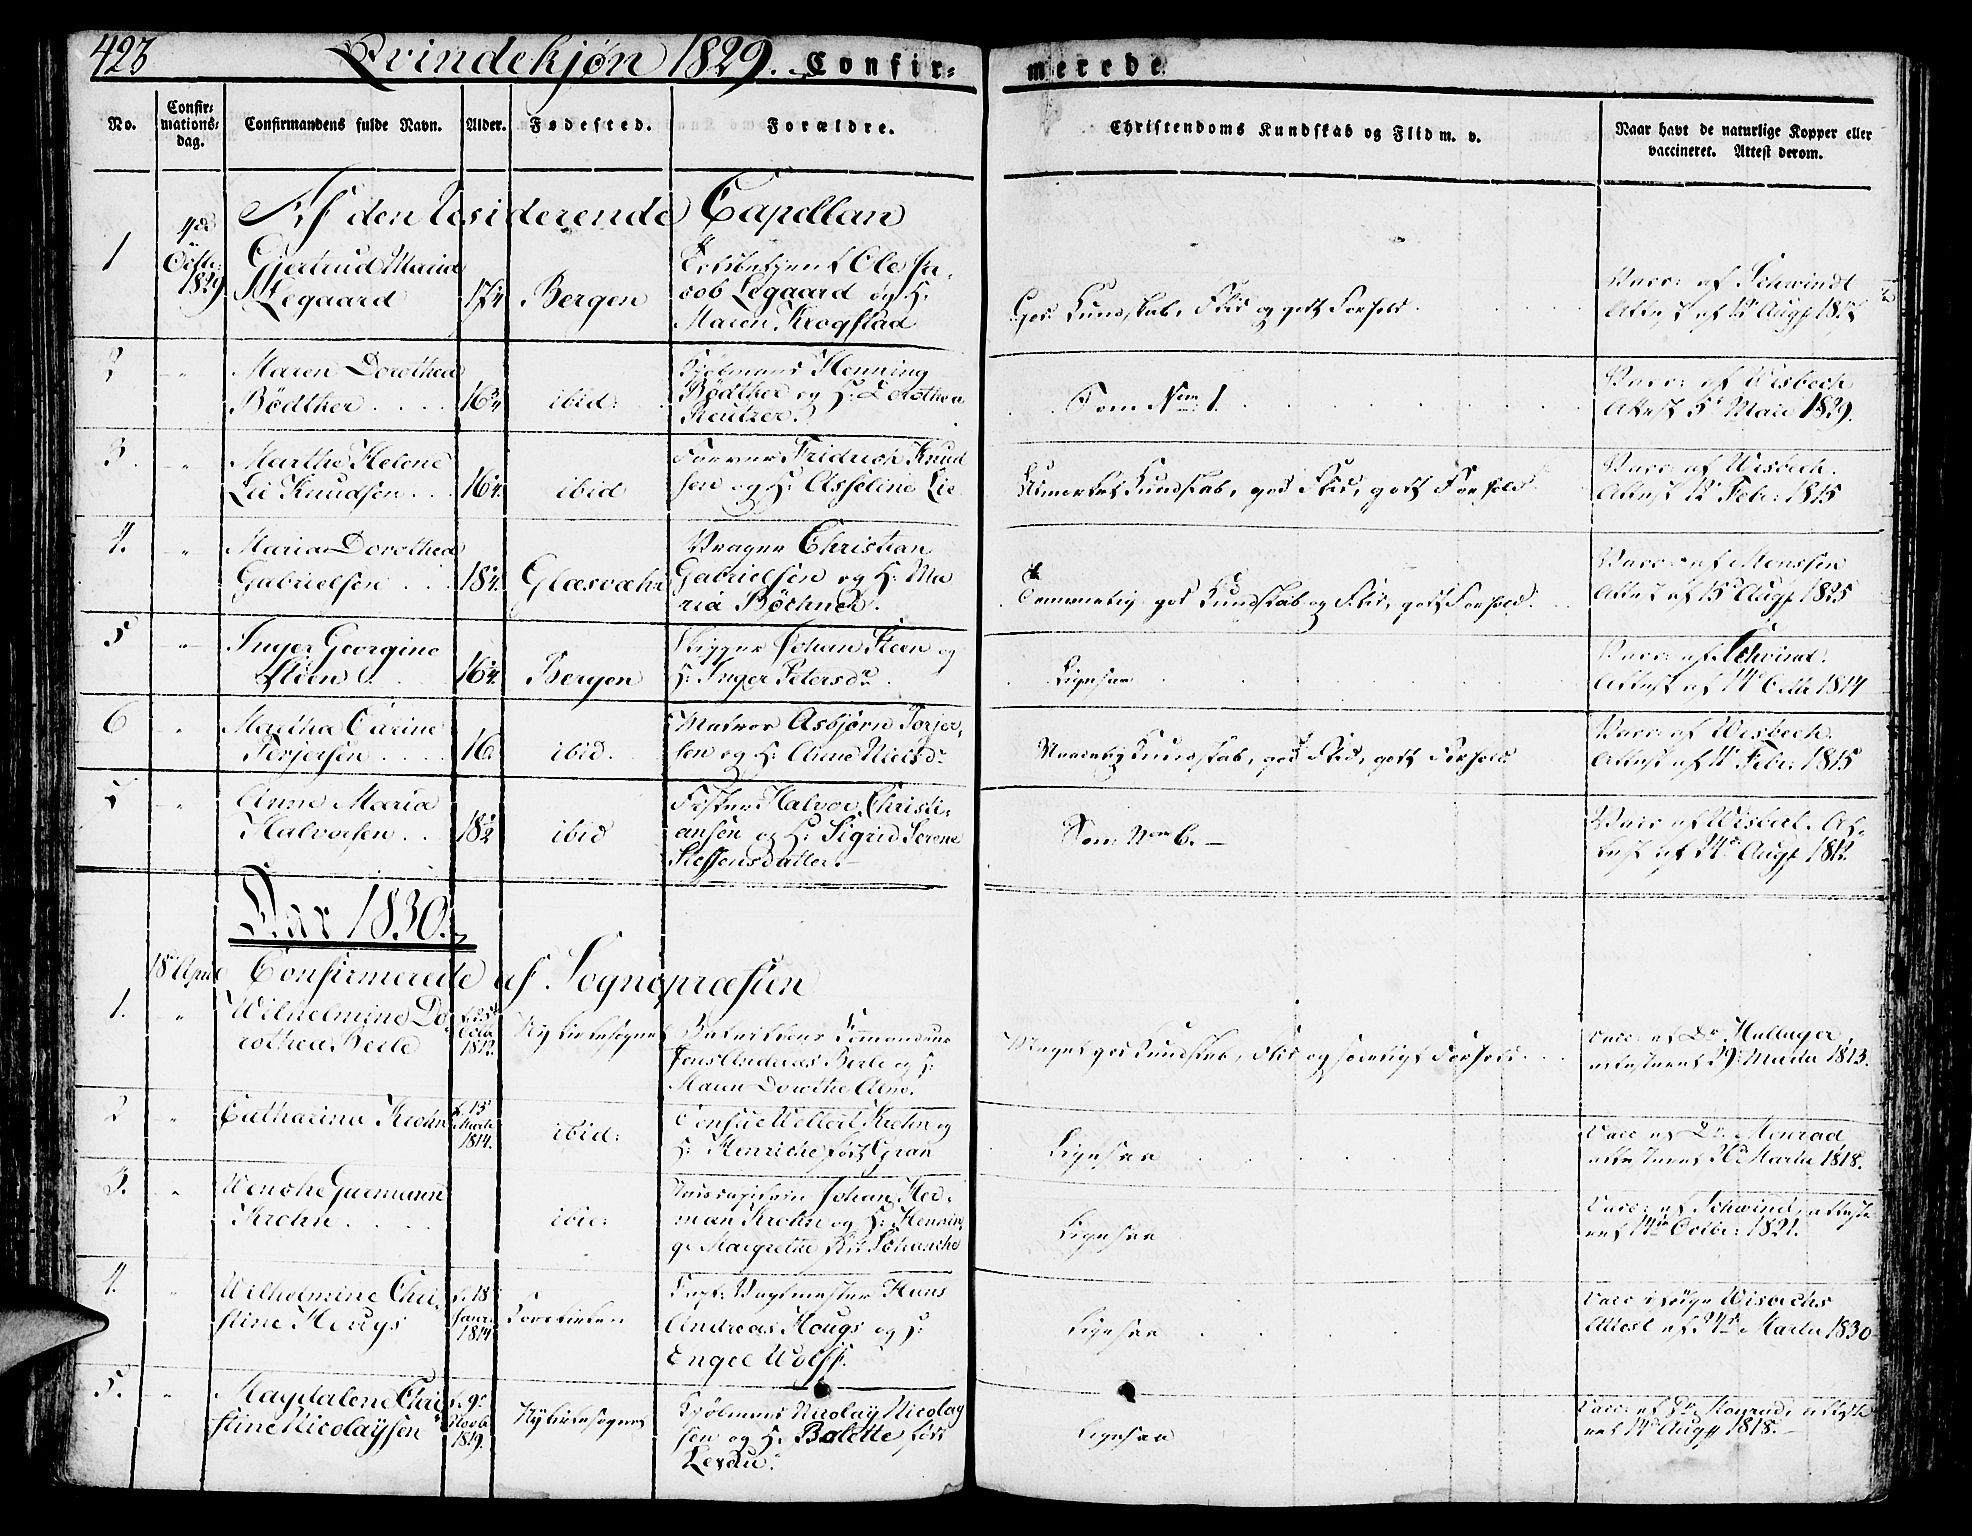 428 Qvindekjøn 1829. Confirmerede
No. Confirmationsdag. Confirmandens fulde Navn. Alder. Fødested. Forældre. Christendoms Kundskab og Flid m. v. Naar havt de naturlige Kopper eller vaccineret. Attest derom.
Af den residerende Capellan
1 4de Octbr: 1829 Gjertrud Maria
Legaard 17 1/4 Bergen
Ole Jacob Legaard og H:
Maren Krogstad
God Kundskab, Flid og godt Forhold.
Vacc: af Schwindt
Attest af 12 Augst
2 " Maren Dorothea
Bödtker . . . . 16 3/4 ibid:
Kjøbmand Henning
Bødtker og H: Dorothea
Reutzer.
Som Nem 1.
Vacc: af Wisbech
Attest 5t Marti 1829.
3. " Marthe Helene
Lie Knudsen . . 16 1/4. ibid
Farver Fridrich Knud
sen og H: Asseline Lie
Udmerket Kundskab, god Flid, godt Forhold.
Vacc: af Wisbech.
Attest 12 Febr: 1815
4. " Maria Dorothea
Gabrielsen . . . 18 1/4. Glæsvæhr
Vrager Christian
Gabrielsen og H: Ma
ria Böchner.
Temmelig god Kundskab og Flid, godt Forhold.
Vacc: af Monssen
Attest af 15d Augst 1825
5 " Inger Georgine
Steen . . . 16 1/4. Bergen
Skipper Johan Steen og
H: Inger Petersdr.
Ligesaa
Vacc: af Schvind.
Attest af 14 Octbr 1814
6 " Martha Carine
Torjersen . . . . 16. ibid.
Matros Asbjørn Torjer,
sen og H: Anne Nielsdr
Maadelig Kundskab, god Flid, godt Forhold
Vacc: af Wisbech.
Attest af 11 Febr: 1815
7 " Anne Maria
Halvorsen . . 18 1/2 ibid
Fisker Halvor Christi-
ansen og H: Sigrid Serene
Steffensdatter.
Som Nem 6. —
Vacc af Wisbech. At-
test af 24 Augst 1812.
Aar 1830.
18 April Confirmerede af Sognepræsten
1. " Wilhelmine Do
rothea Berle f. 5t Octb 1812. Nykirkesognet
Jens Andreas Berle og H:
Maren Dorothe
Meget god Kundskab, Flid og sædeligt Forhold
Vacc: af Dr
attesteret 29 Martii 1813.
2 " Catharina Krohn f. 15 Martii 1814. ibid:
Consul Wollert Krohn og
H: Henriche født Gran
Ligesaa
Vacc af Dr. Monrad
attesteret Martii 1818.
3. " Wenche Guermann
Krohn . . . . ibid:
Johan Hed-
man Krohn og H: Hennin
ge Margrethe
Ligesaa
Vacc: af Schwind, atteste
ret 14de Octbr: 1821.
4. " Wilhelmine Chri-
stine Hougs f. 18 Janr. 1814 Korskirken
Capt: Vagtmester Hans
Andreas Hougs og H:
Engel Wolff.
Ligesaa
Vacc ifølge Wisbechs
Attest af Martii 1830
5. " Magdalene Chri
stine Nicolaysen f. 9e Novbr 1819. Nykirkesognet
Kjøbmand Nicolay Nicolay
sen og H. Bolette født
Lexau.
Ligesaa
Vacc: af Dr Monrad, atteste
ret Augst 1818.